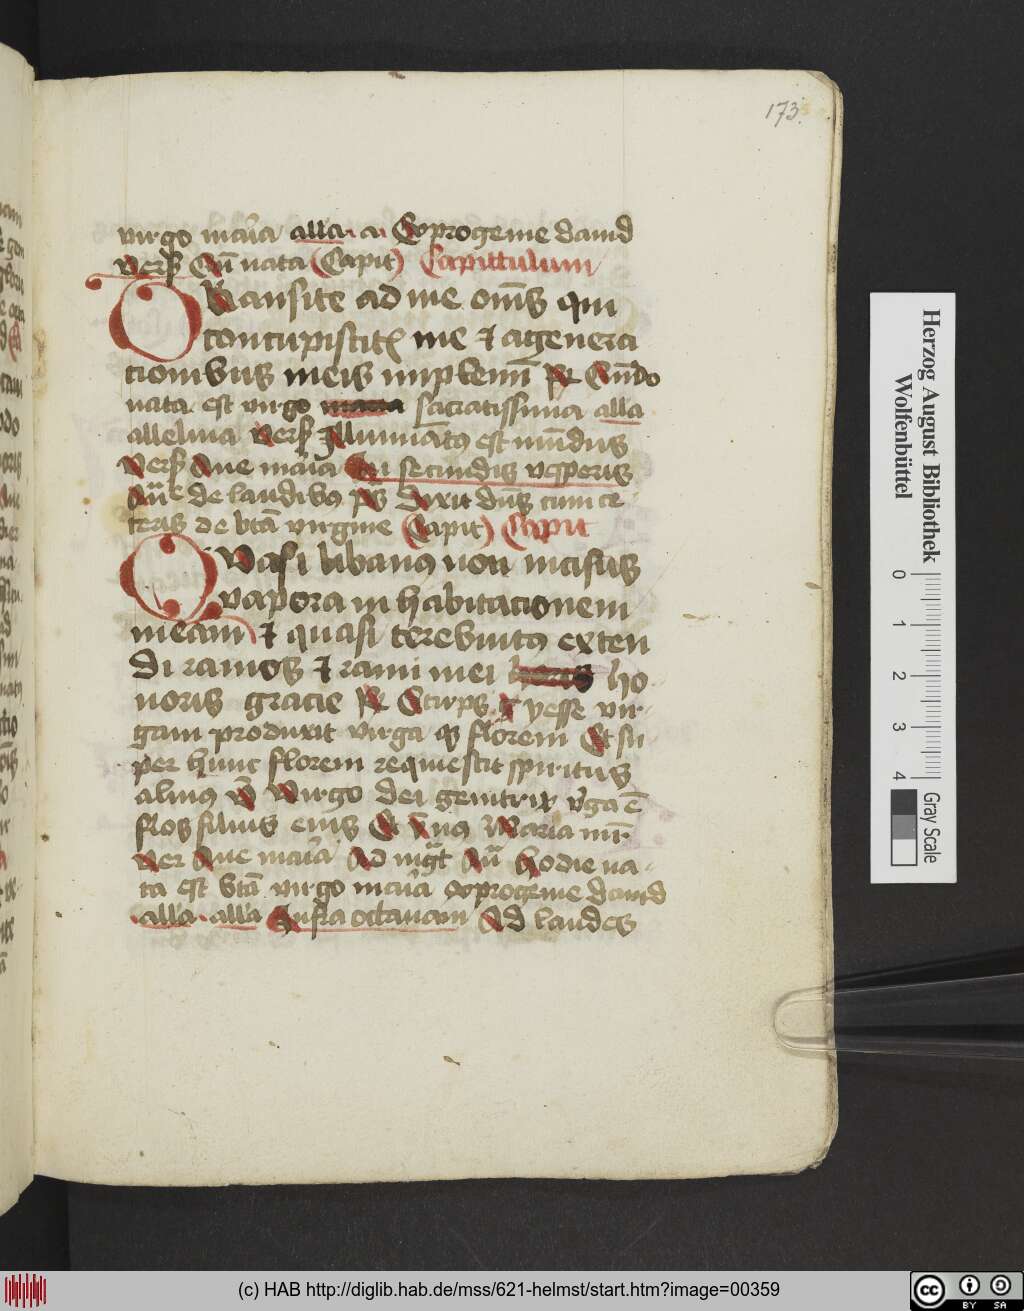 173.
virgo maria alla · a · Ex progenie dauid
vers Cū nata (Capit) Capittulum
Transite ad me oms̄ qui
concupiscitꝭ me ⁊ a genera
cionibus meis implemī ℟ Qn̄do
nata est virgo maria sacratissima alla
alleluia vers Illumiatꝰ est mūdus
vers Aue maria In secundis vesperis
Añ de laudibꝰ pš Dixit dn̄s cum ce
teris de btā virgine (Capit) Capit
Quasi libanꝰ non incisus
vapora in habitacionem
meam ⁊ quasi terebintꝰ exten
di ramos ⁊ rami mei ho
noris gracie ℟ Stirps yesse vir
gam produxit virga qꝫ florem Et su
per hunc florem requiescit spiritus
almꝰ v̄ Virgo dei genitrix v̓ga ē
flos filius eius Et Maria
ver Aue maria Ad mgt̄ Añ hodie na
ta est btā virgo maria ex progenie dauid
· alla · alla Infra octauam Ad laudes
Herzog August Bibliothek
Wolfenbüttel
0 1 2 3 4
Gray Scale
(c) HAB http://diglib.hab.de/mss/621-helmst/start.htm?image=00359
cc BY SA